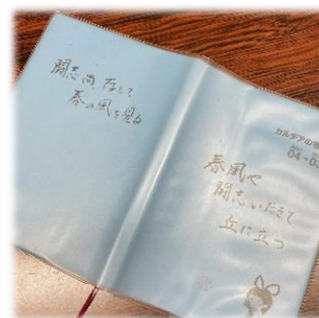 闘志尚、存して
春の風を見る
カルデアの
春風や
闘志いだきて
丘に立つ